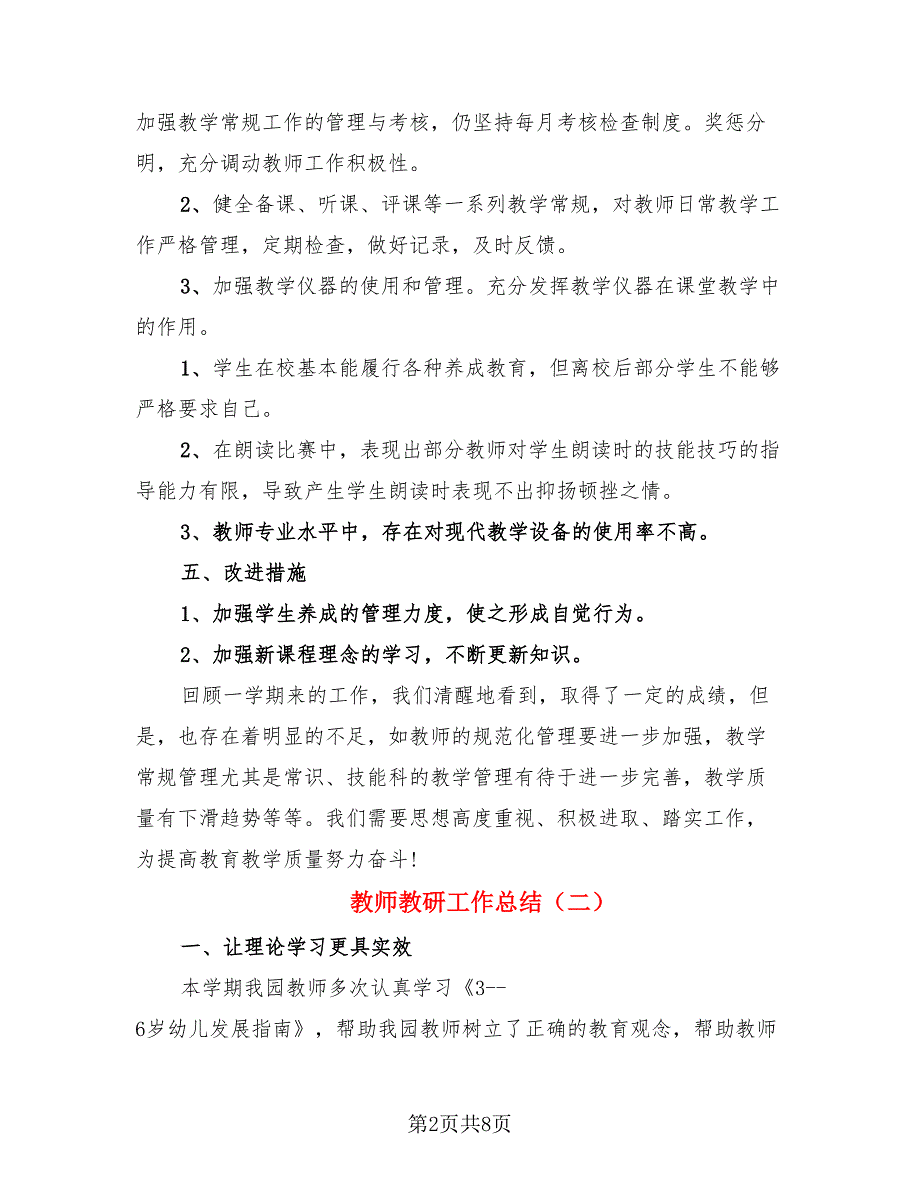 加强教学常规工作的管理与考核，仍坚持每月考核检查制度。奖惩分
明，充分调动教师工作积极性。
2、健全备课、听课、评课等一系列教学常规，对教师日常教学工
作严格管理，定期检查，做好记录，及时反馈。
3、加强教学仪器的使用和管理。充分发挥教学仪器在课堂教学中
的作用。
1、学生在校基本能履行各种养成教育，但离校后部分学生不能够
严格要求自己。
2、在朗读比赛中，表现出部分教师对学生朗读时的技能技巧的指
导能力有限，导致产生学生朗读时表现不出抑扬顿挫之情。
3、教师专业水平中，存在对现代教学设备的使用率不高。
五、改进措施
1、加强学生养成的管理力度，使之形成自觉行为。
2、加强新课程理念的学习，不断更新知识。
回顾一学期来的工作，我们清醒地看到，取得了一定的成绩，但
是，也存在着明显的不足，如教师的规范化管理要进一步加强，教学
常规管理尤其是常识、技能科的教学管理有待于进一步完善，教学质
量有下滑趋势等等。我们需要思想高度重视、积极进取、踏实工作，
为提高教育教学质量努力奋斗!
教师教研工作总结（二）
一、让理论学习更具实效
本学期我园教师多次认真学习《3--
6岁幼儿发展指南》，帮助我园教师树立了正确的教育观念，帮助教师
第2页共8页